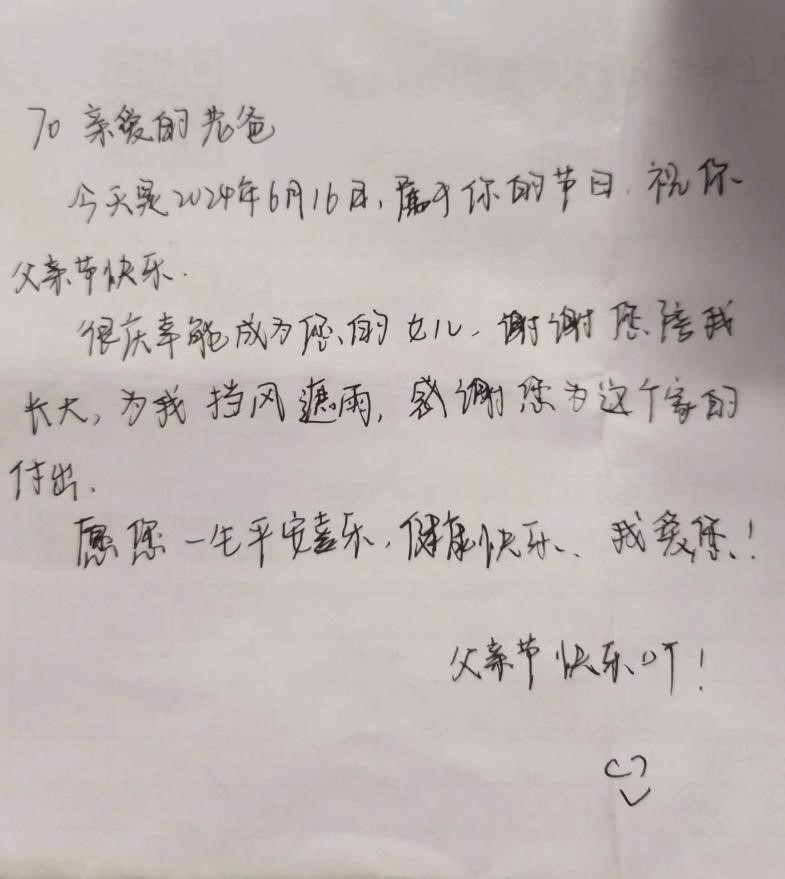 To 亲爱的老爸
今天是2024年6月16日,属于你的节日.祝你
父亲节快乐.
很庆幸能成为您的女儿,谢谢您陪我
长大,为我挡风遮雨,感谢您为这个家的
付出.
愿您一生平安喜乐,健康快乐.我爱您!
父亲节快乐吖!